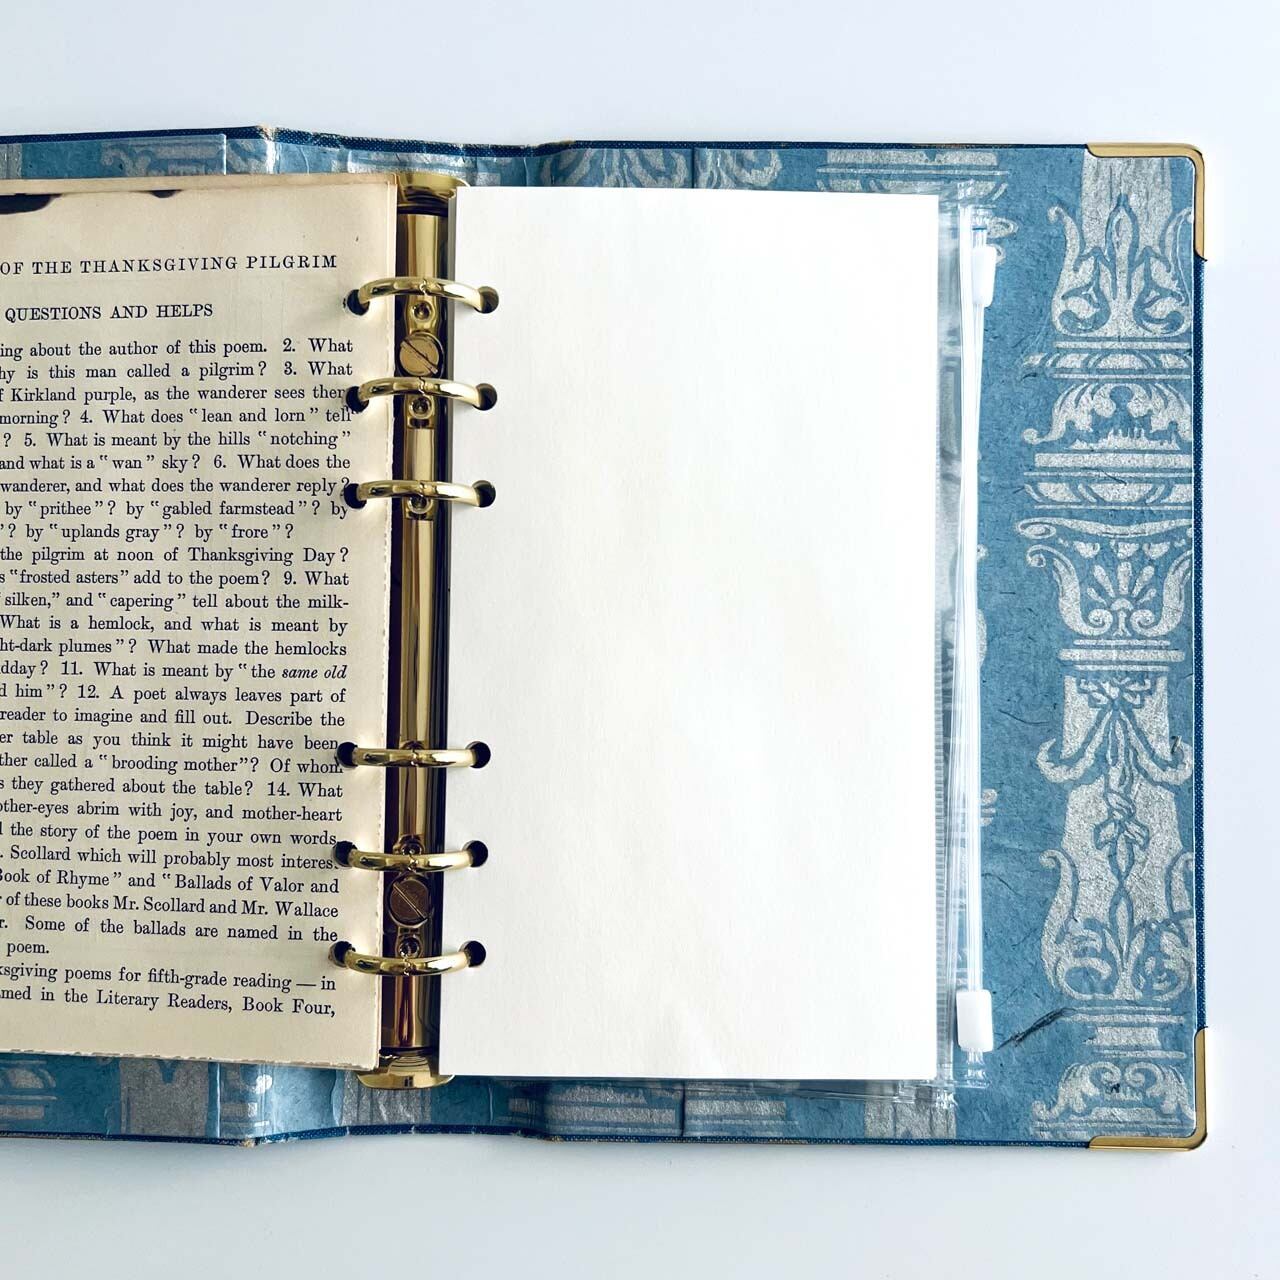 OF THE THANKSGIVING PILGRIM
QUESTIONS AND HELPS
ing about the author of this poem. 2. What
hy is this man called a pilgrim? 3. What
f Kirkland purple, as the wanderer sees them
morning? 4. What does "lean and lorn" tell
? 5. What is meant by the hills "notching"
and what is a "wan" sky? 6. What does the
wanderer, and what does the wanderer reply?
by "prithee"? by "gabled farmstead"? by
"? by "uplands gray"? by "frore"?
the pilgrim at noon of Thanksgiving Day?
s "frosted asters" add to the poem? 9. What
"silken," and "capering" tell about the milk-
What is a hemlock, and what is meant by
ht-dark plumes"? What made the hemlocks
dday? 11. What is meant by "the same old
d him"? 12. A poet always leaves part of
reader to imagine and fill out. Describe the
er table as you think it might have been.
ther called a "brooding mother"? Of whom
s they gathered about the table? 14. What
other-eyes abrim with joy, and mother-heart
l the story of the poem in your own words.
. Scollard which will probably most interest
Book of Rhyme" and "Ballads of Valor and
r of these books Mr. Scollard and Mr. Wallace
r. Some of the ballads are named in the
poem.
ksgiving poems for fifth-grade reading — in
med in the Literary Readers, Book Four,